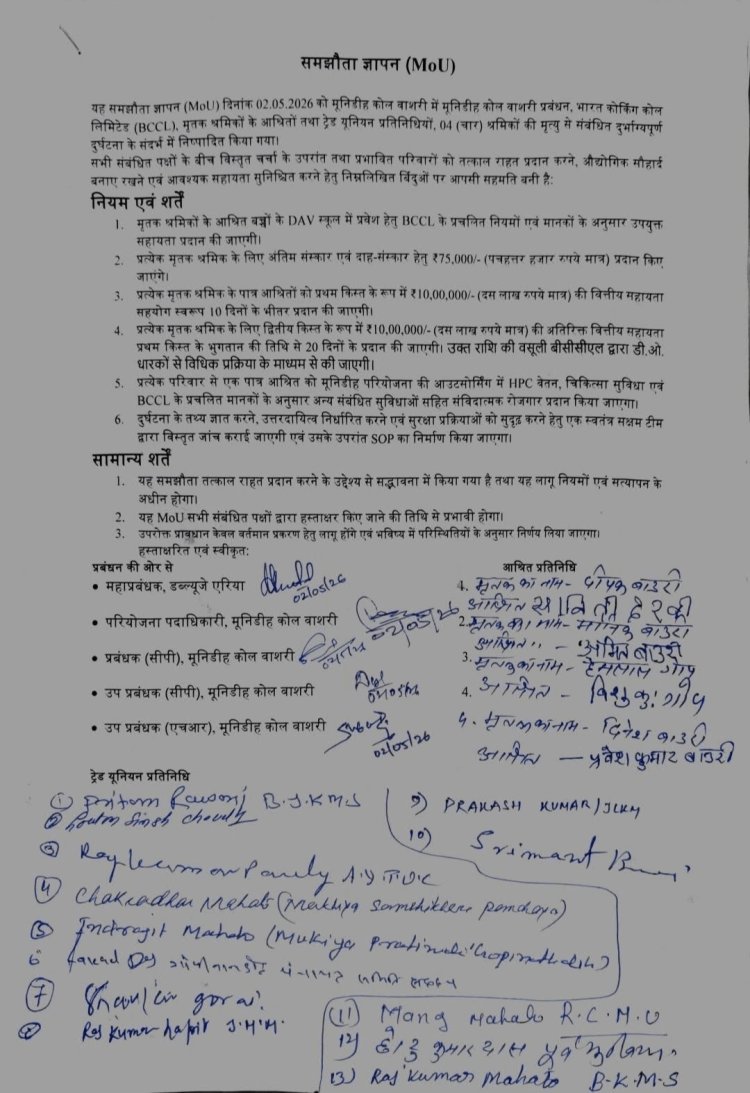 समझौता ज्ञापन (MoU)
यह समझौता ज्ञापन (MoU) दिनांक 02.05.2026 को मूनिडीह कोल वाशरी में मूनिडीह कोल वाशरी प्रबंधन, भारत कोकिंग कोल
लिमिटेड (BCCL), मृतक श्रमिकों के आश्रितों तथा ट्रेड यूनियन प्रतिनिधियों, 04 (चार) श्रमिकों की मृत्यु से संबंधित दुर्भाग्यपूर्ण
दुर्घटना के संदर्भ में निष्पादित किया गया।
सभी संबंधित पक्षों के बीच विस्तृत चर्चा के उपरांत तथा प्रभावित परिवारों को तत्काल राहत प्रदान करने, औद्योगिक सौहार्द
बनाए रखने एवं आवश्यक सहायता सुनिश्चित करने हेतु निम्नलिखित बिंदुओं पर आपसी सहमति बनी है:
नियम एवं शर्तें
1. मृतक श्रमिकों के आश्रित बच्चों के DAV स्कूल में प्रवेश हेतु BCCL के प्रचलित नियमों एवं मानकों के अनुसार उपयुक्त
सहायता प्रदान की जाएगी।
2. प्रत्येक मृतक श्रमिक के लिए अंतिम संस्कार एवं दाह-संस्कार हेतु ₹75,000/- (पचहत्तर हजार रुपये मात्र) प्रदान किए
जाएंगे।
3. प्रत्येक मृतक श्रमिक के पात्र आश्रितों को प्रथम किस्त के रूप में ₹10,00,000/- (दस लाख रुपये मात्र) की वित्तीय सहायता
सहयोग स्वरूप 10 दिनों के भीतर प्रदान की जाएगी।
4. प्रत्येक मृतक श्रमिक के लिए द्वितीय किस्त के रूप में ₹10,00,000/- (दस लाख रुपये मात्र) की अतिरिक्त वित्तीय सहायता
प्रथम किस्त के भुगतान की तिथि से 20 दिनों के प्रदान की जाएगी। उक्त राशि की वसूली बीसीसीएल द्वारा डी.ओ.
धारकों से विधिक प्रक्रिया के माध्यम से की जाएगी।
5. प्रत्येक परिवार से एक पात्र आश्रित को मूनिडीह परियोजना की आउटसोर्सिंग में HPC वेतन, चिकित्सा सुविधा एवं
BCCL के प्रचलित मानकों के अनुसार अन्य संबंधित सुविधाओं सहित संविदात्मक रोजगार प्रदान किया जाएगा।
6. दुर्घटना के तथ्य ज्ञात करने, उत्तरदायित्व निर्धारित करने एवं सुरक्षा प्रक्रियाओं को सुदृढ़ करने हेतु एक स्वतंत्र सक्षम टीम
द्वारा विस्तृत जांच कराई जाएगी एवं उसके उपरांत SOP का निर्माण किया जाएगा।
सामान्य शर्तें
1. यह समझौता तत्काल राहत प्रदान करने के उद्देश्य से सद्भावना में किया गया है तथा यह लागू नियमों एवं सत्यापन के
अधीन होगा।
2. यह MoU सभी संबंधित पक्षों द्वारा हस्ताक्षर किए जाने की तिथि से प्रभावी होगा।
3. उपरोक्त प्रावधान केवल वर्तमान प्रकरण हेतु लागू होंगे एवं भविष्य में परिस्थितियों के अनुसार निर्णय लिया जाएगा।
हस्ताक्षरित एवं स्वीकृत:
प्रबंधन की ओर से
• महाप्रबंधक, डब्ल्यूजे एरिया 02/05/26
• परियोजना पदाधिकारी, मूनिडीह कोल वाशरी 02/05/26
• प्रबंधक (सीपी), मूनिडीह कोल वाशरी
• उप प्रबंधक (सीपी), मूनिडीह कोल वाशरी
• उप प्रबंधक (एचआर), मूनिडीह कोल वाशरी 02/05/26
आश्रित प्रतिनिधि
1. मृतक का नाम - दीपक बाउरी
आश्रित सावित्री देवी
2. मृतक का नाम - मानिक बाउरी
आश्रित " - अमित बाउरी
3. मृतक का नाम - हेमलाल गोप
4. आश्रित - विशु कु: गोप
4. मृतक का नाम - दिनेश बाउरी
आश्रित - प्रवेश कुमार बाउरी
ट्रेड यूनियन प्रतिनिधि
① B.J.K.M.S
②  Singh
③ A.I.T.U.C
④ Chakradhar Mahato (Mukhiya
⑤ Indrajit Mahato (Mukiya
6
⑦ gorai
⑧ Raj Kumar J.M.M.
9) PRAKASH KUMAR/JLKM
10) Srimant
11) Mahato R.C.M.U
12) कुमार दास पूर्व
13) Raj Kumar Mahato B.K.M.S